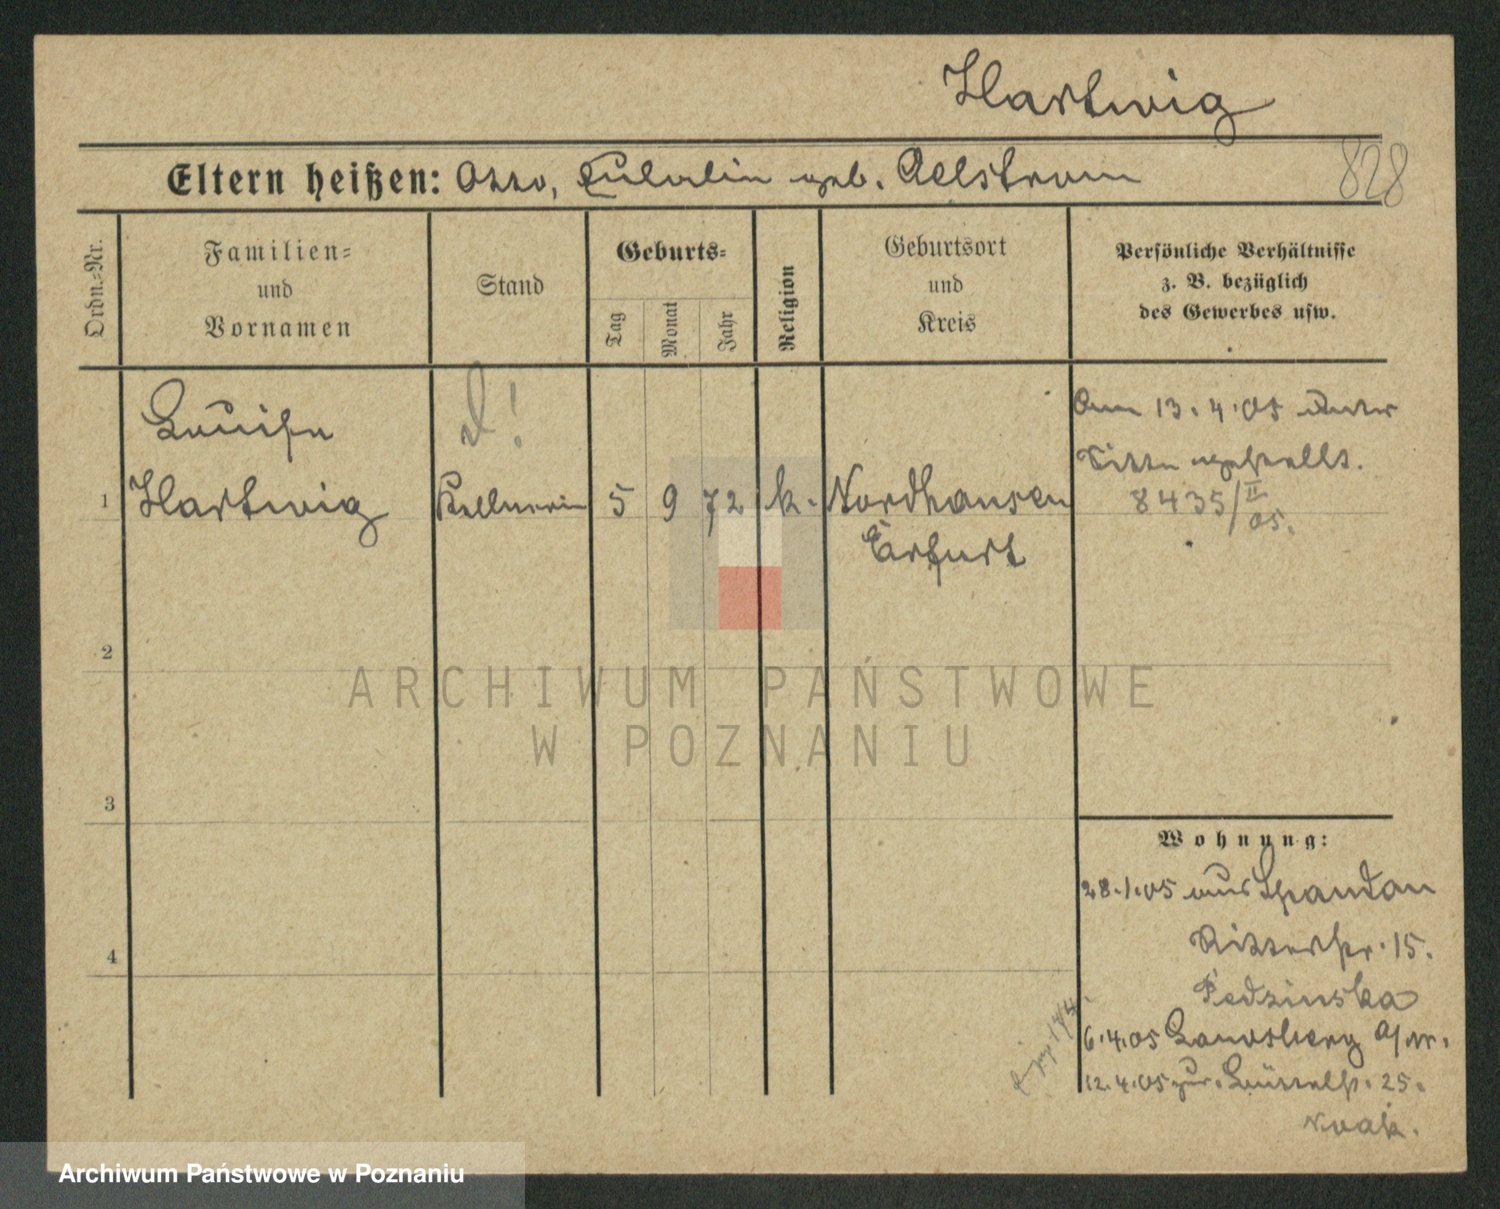 Hartwig
828
Eltern heißen: Otto, Eulalia geb. Aelstrom
Ordn.-Nr.
Familien-
und
Vornamen
Stand
Geburts-
Tag
Monat
Jahr
Religion
Geburtsort
und
Kreis
Persönliche Verhältnisse
z. B. bezüglich
des Gewerbes usw.
Louise
Am 13.4.05 unter
Sitte gestellt.
8435/II 05.
1 Hartwig Kellnerin 5 9 72 k. Nordhausen
Erfurt
2
3
4
ARCHIWUM PAŃSTWOWE
W POZNANIU
Wohnung:
28.1.05 aus Spandau
Ritterstr. 15.
6.4.05 Landsberg a/W.
12.4.05 zur. 25.
Archiwum Państwowe w Poznaniu